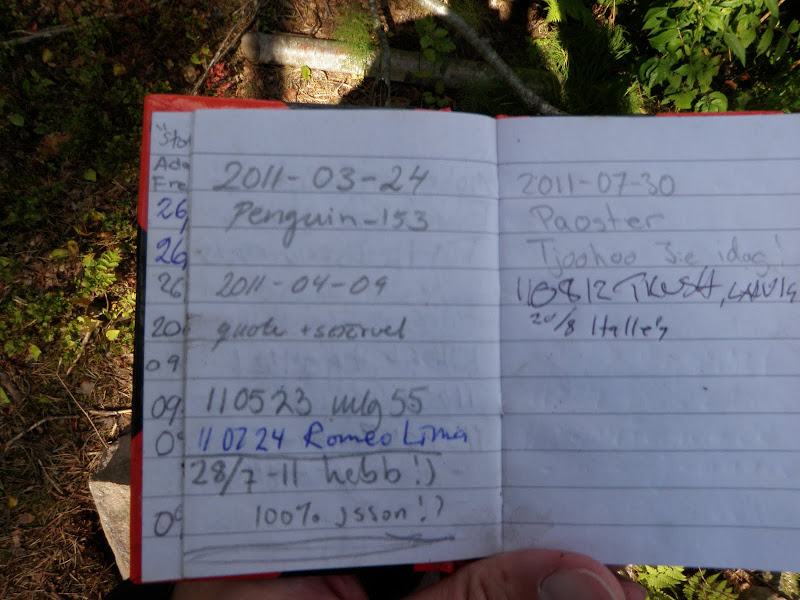 "Sto
Ada
Fre
26,
26,
26
20
09
09.
0
09
2011-03-24
Penguin-153
2011-04-09
quote +
110523 mlg55
110724 Romeo Lima
28/7-11 hebb!)
100% jsson!)
2011-07-30
Paoster
Tjoohoo 3:e idag!
110812
20/8 Halle's